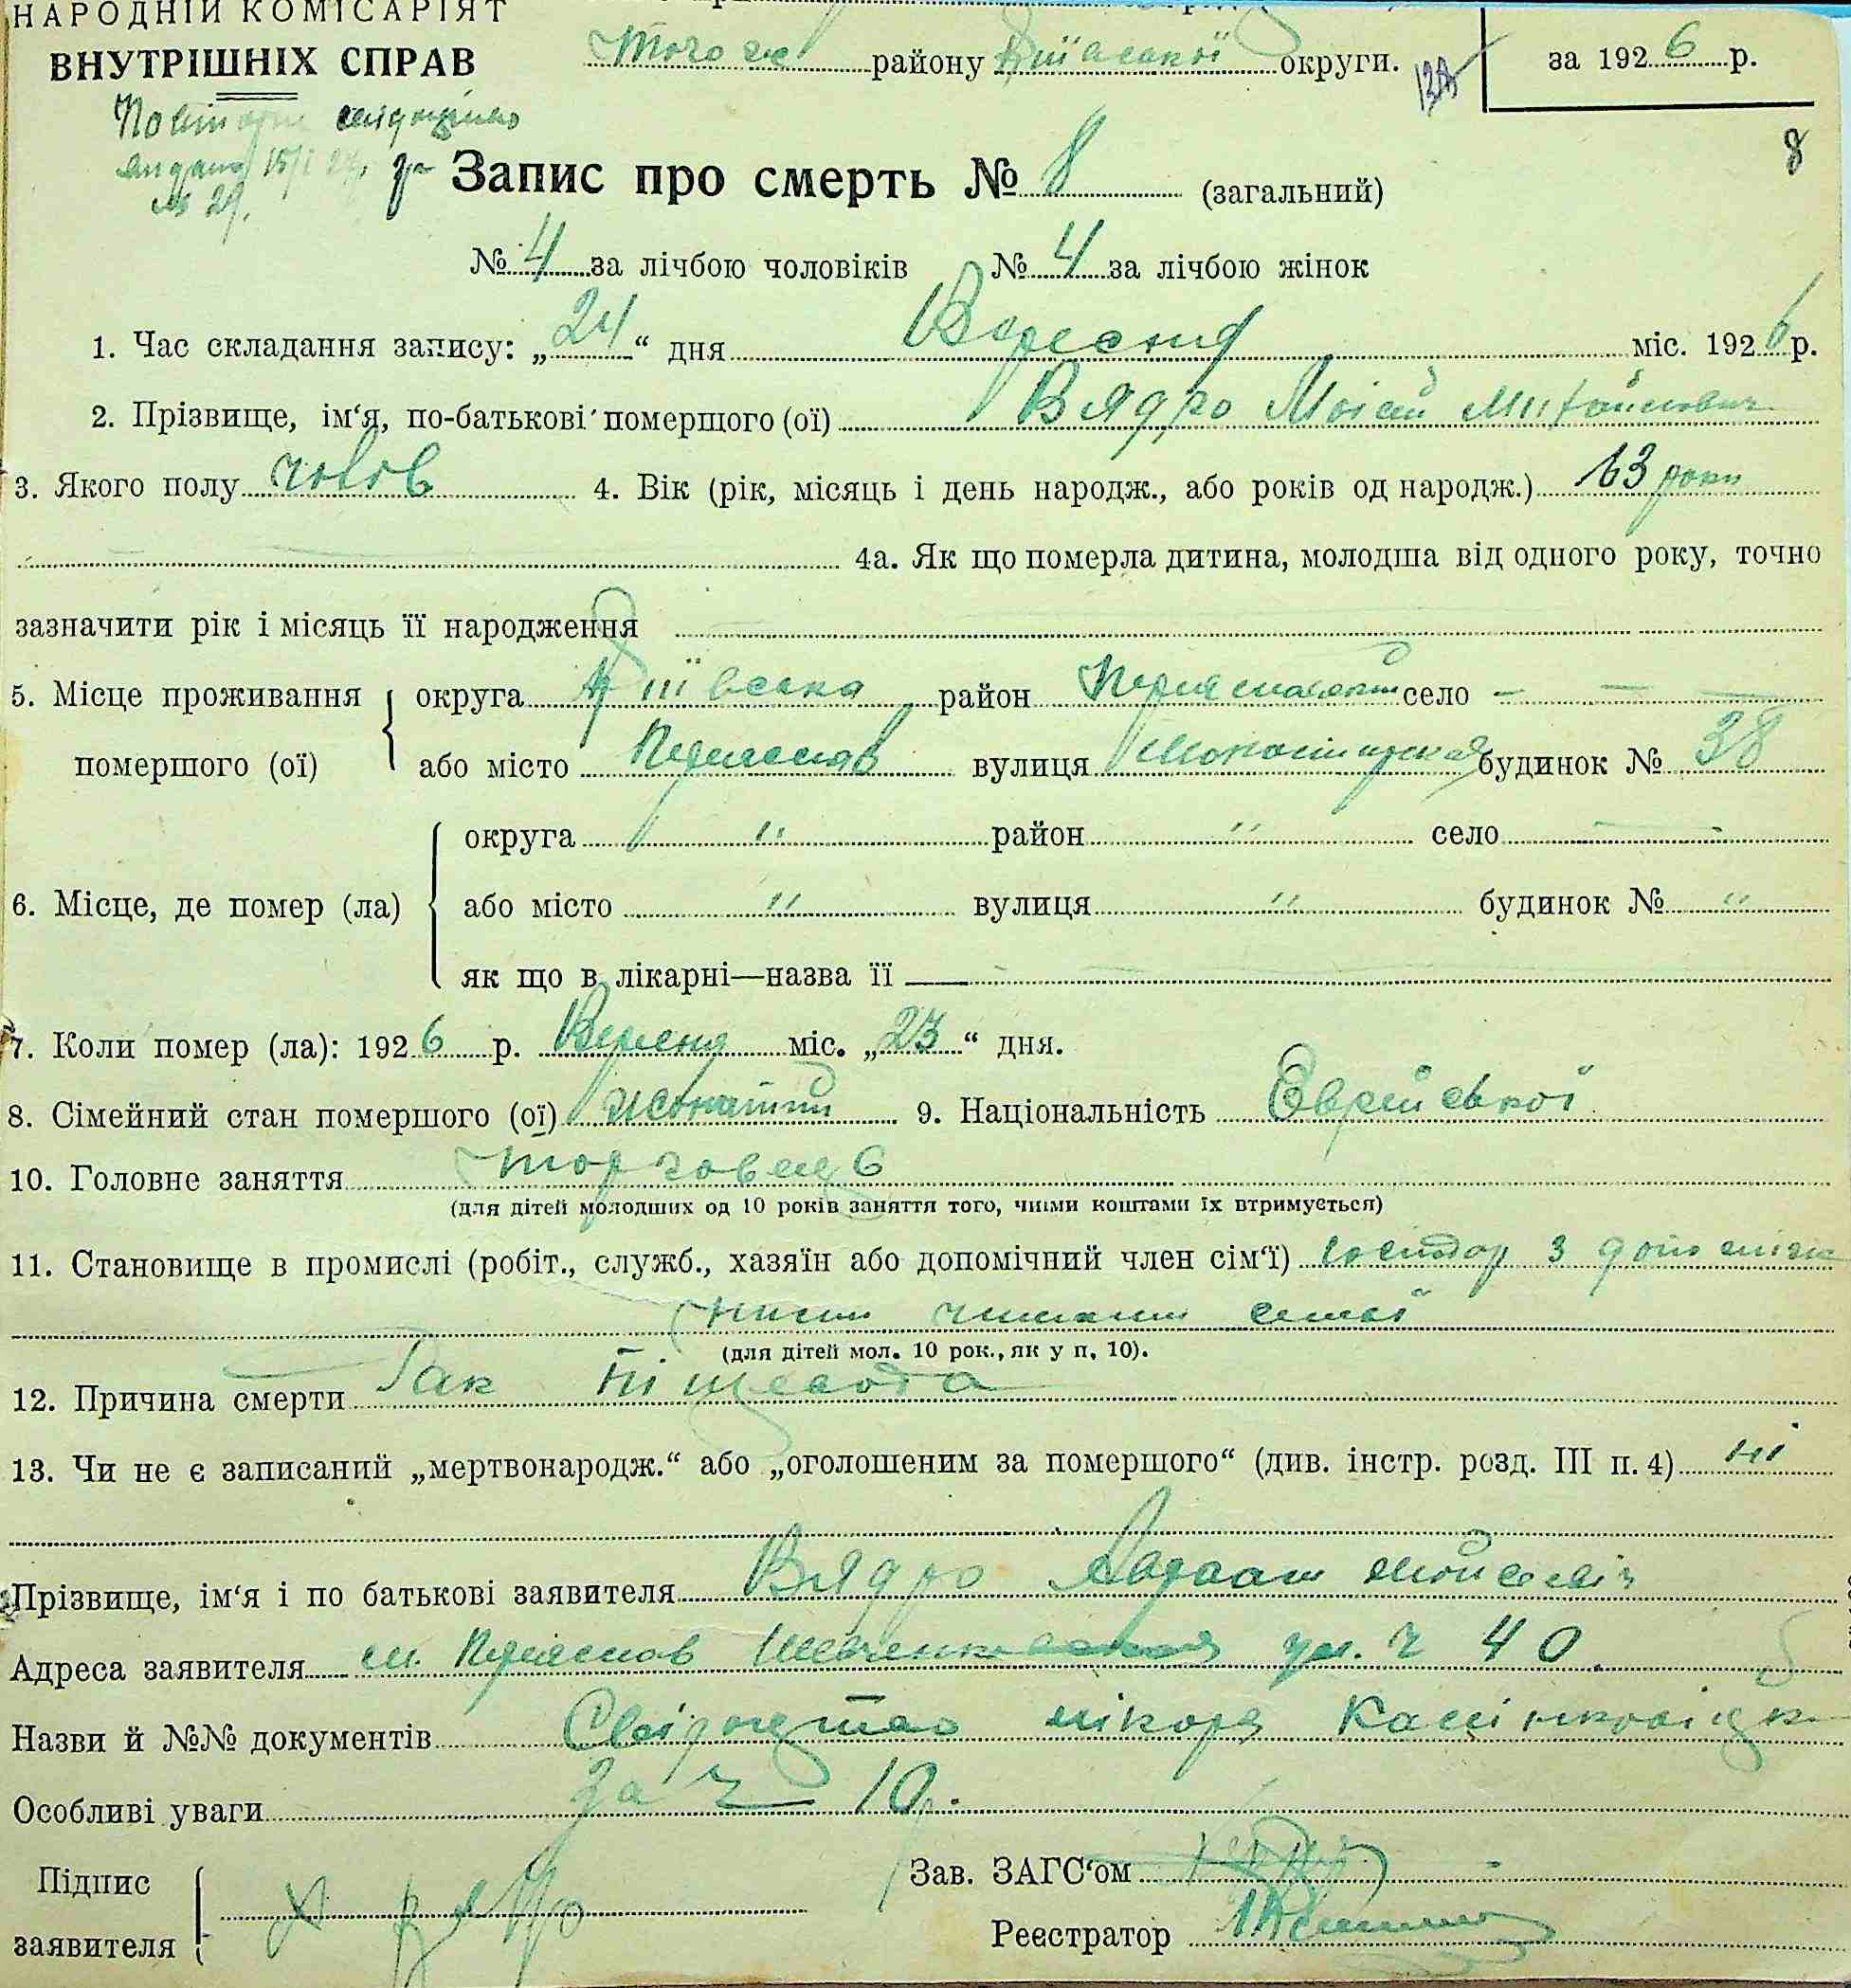 НАРОДНІЙ КОМІСАРІЯТ
ВНУТРІШНІХ СПРАВ
Того же району Київської округи.
за 1926 р.
8
Запис про смерть № 8 (загальний)
№ 4 за лічбою чоловіків № 4 за лічбою жінок
1. Час складання запису: „24“ дня Вересня міс. 1926 р.
2. Прізвище, ім‘я, по-батькові помершого (ої) Вядро Моісей
3. Якого полу чолов 4. Вік (рік, місяць і день народж., або років од народж.) 63 роки
4а. Як що померла дитина, молодша від одного року, точно
зазначити рік і місяць її народження
5. Місце проживання помершого (ої)
округа Київська район Переяславськ село —
або місто Переяслав вулиця будинок № 38
6. Місце, де помер (ла)
округа " район " село —
або місто " вулиця " будинок № "
як що в лікарні—назва її —
7. Коли помер (ла): 1926 р. Вересня міс. „23“ дня.
8. Сімейний стан помершого (ої) жонатий 9. Національність Єврейської
10. Головне заняття торговець
(для дітей молодших од 10 років заняття того, чиїми коштами їх втримується)
11. Становище в промислі (робіт., служб., хазяїн або допомічний член сім‘ї) господар з допоміч
ними членами семьї
(для дітей мол. 10 рок., як у п. 10).
12. Причина смерти Рак піщевода
13. Чи не є записаний „мертвонародж.“ або „оголошеним за помершого“ (див. інстр. розд. III п. 4) ні
Прізвище, ім‘я і по батькові заявителя Вядро Авраам Мойсеевіч
Адреса заявителя м. Переяслав ул. ч 40.
Назви й №№ документів Свідоцтво лікаря
Особливі уваги за ч 10.
Підпис заявителя
Зав. ЗАГС‘ом
Реєстратор